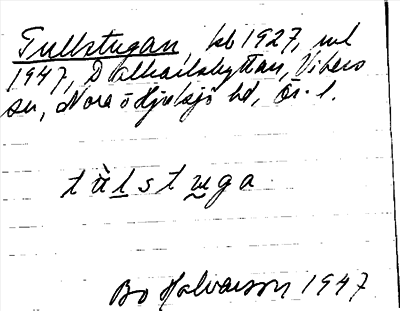 Tullstugan, kb 1927, ml
1947, Dalkarlshyttan, Vikers
sn, Nora o Hjulsjö bd, Ör. l.
tùlstuga
Bo Halvarson 1947